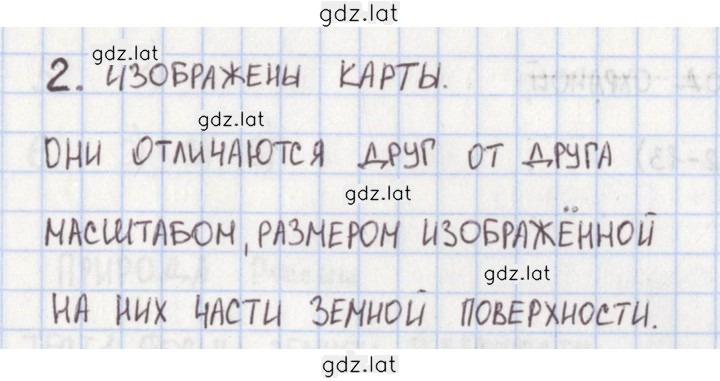 gdz.lat
gdz.lat
2. ИЗОБРАЖЕНЫ КАРТЫ.
gdz.lat
ОНИ ОТЛИЧАЮТСЯ ДРУГ ОТ ДРУГА
gdz.lat
МАСШТАБОМ, РАЗМЕРОМ ИЗОБРАЖЁННОЙ
gdz.lat
НА НИХ ЧАСТИ ЗЕМНОЙ ПОВЕРХНОСТИ.
gdz.lat